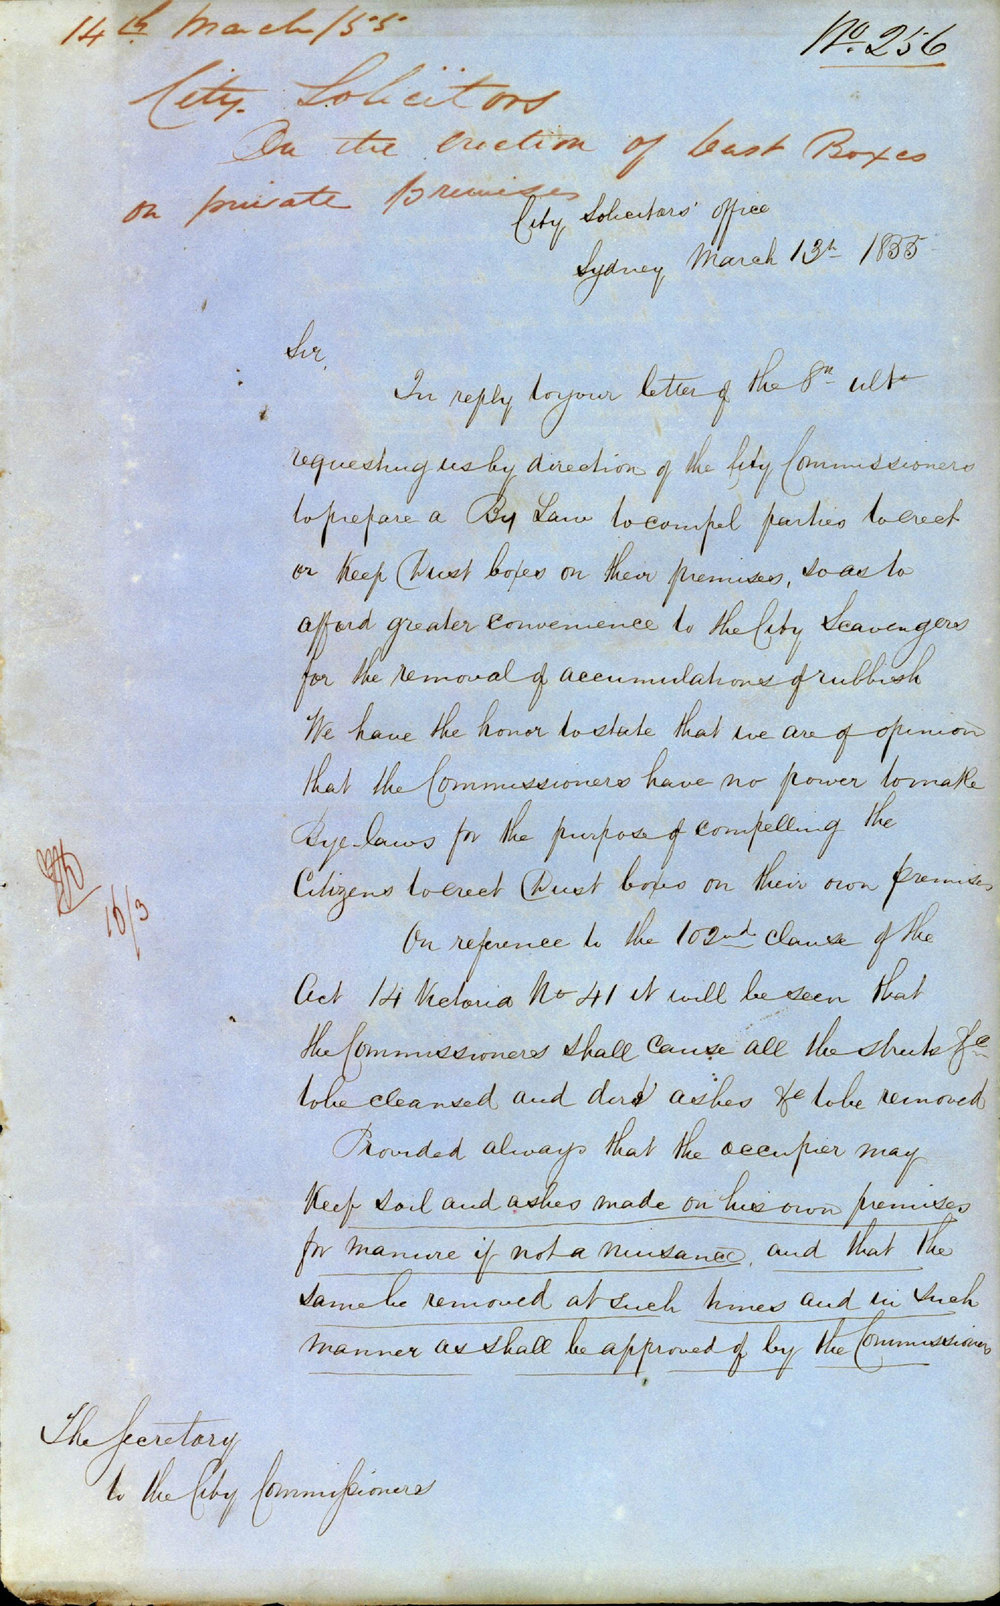 14th March /55
No. 256
City Solicitors
On the erection of Dust Boxes
on private premises
City Solicitors' Office
Sydney March 13th 1855
Sir,
In reply to your letter of the 8th ulto
requesting us by direction of the City Commissioners
to prepare a By Law to compel parties to erect
or keep Dust boxes on their premises, so as to
afford greater convenience to the City Scavengers
for the removal of accumulations of rubbish
We have the honor to state that we are of opinion
that the Commissioners have no power to make
Bye-laws for the purpose of compelling the
Citizens to erect Dust boxes on their own premises
On reference to the 102nd clause of the
Act 14 Victoria No 41 it will be seen that
the Commissioners shall cause all the streets &c
to be cleansed and dirt ashes &c to be removed
Provided always that the occupier may
keep soil and ashes made on his own premises
for manure if not a nuisance, and that the
same be removed at such times and in such
manner as shall be approved of by the Commissioners
16/3
The Secretary
to the City Commissioners